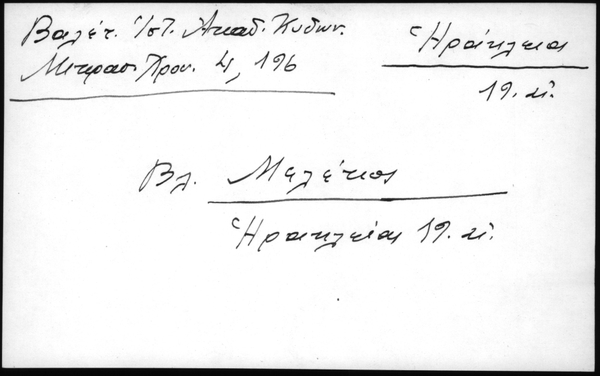 Βαλέτ. Ἱστ. Ἀκαδ. Κυδων.
Μικρασ. Χρον. 4, 196
Ἡράκλεια
19. αἰ.
Βλ. Μελέτιος
Ἡρακλείας 19. αἰ.